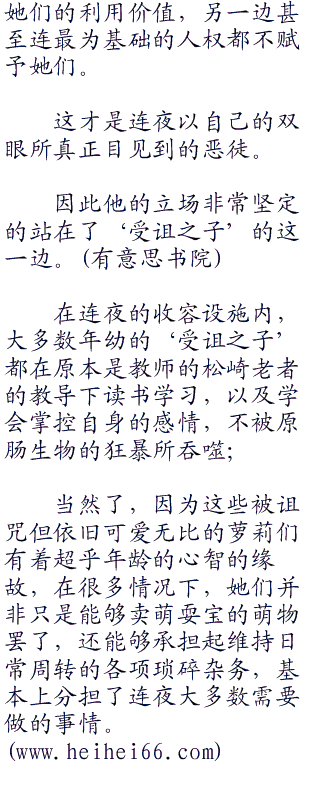 她们的利用价值，另一边甚
至连最为基础的人权都不赋
予她们。
这才是连夜以自己的双
眼所真正目见到的恶徒。
因此他的立场非常坚定
的站在了‘受诅之子’的这
一边。(有意思书院)
在连夜的收容设施内，
大多数年幼的‘受诅之子’
都在原本是教师的松崎老者
的教导下读书学习，以及学
会掌控自身的感情，不被原
肠生物的狂暴所吞噬;
当然了，因为这些被诅
咒但依旧可爱无比的萝莉们
有着超乎年龄的心智的缘
故，在很多情况下，她们并
非只是能够卖萌耍宝的萌物
罢了，还能够承担起维持日
常周转的各项琐碎杂务，基
本上分担了连夜大多数需要
做的事情。
(www.heihei66.com)